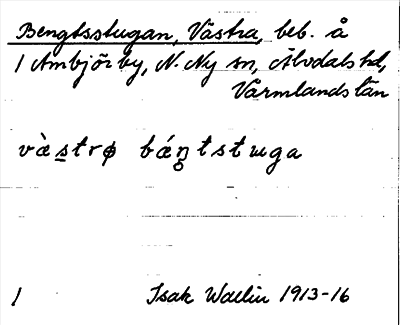 Bengtsstugan, Västra, beb. å
1 Ambjörby, N. Ny sn, Älvdals hd,
Värmlands län
vàstrø báŋtstɯga
1 Isak Wallin 1913-16